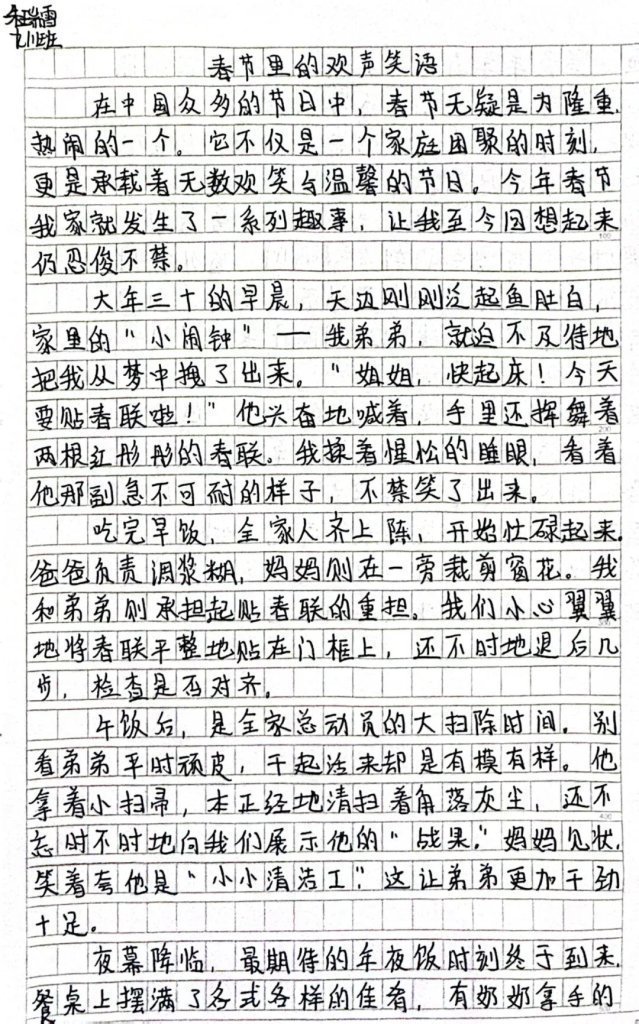 朱瑞雪
九11班
春节里的欢声笑语
在中国众多的节日中，春节无疑是为隆重、
热闹的一个。它不仅是一个家庭团聚的时刻，
更是承载着无数欢笑与温馨的节日。今年春节
我家就发生了一系列趣事，让我至今回想起来
仍忍俊不禁。
大年三十的早晨，天边刚刚泛起鱼肚白，
家里的“小闹钟”——我弟弟，就迫不及待地
把我从梦中拽了出来。“姐姐，快起床！今天
要贴春联啦！”他兴奋地喊着，手里还挥舞着
两根红彤彤的春联。我揉着惺忪的睡眼，看着
他那副急不可耐的样子，不禁笑了出来。
吃完早饭，全家人齐上阵，开始忙碌起来。
爸爸负责调浆糊，妈妈则在一旁裁剪窗花。我
和弟弟则承担起贴春联的重担。我们小心翼翼
地将春联平整地贴在门框上，还不时地退后几
步，检查是否对齐。
午饭后，是全家总动员的大扫除时间。别
看弟弟平时顽皮，干起活来却是有模有样。他
拿着小扫帚，本正经地清扫着角落灰尘，还不
忘时不时地向我们展示他的“战果。”妈妈见状，
笑着夸他是“小小清洁工”。这让弟弟更加干劲
十足。
夜幕降临，最期待的年夜饭时刻终于到来。
餐桌上摆满了各式各样的佳肴，有奶奶拿手的